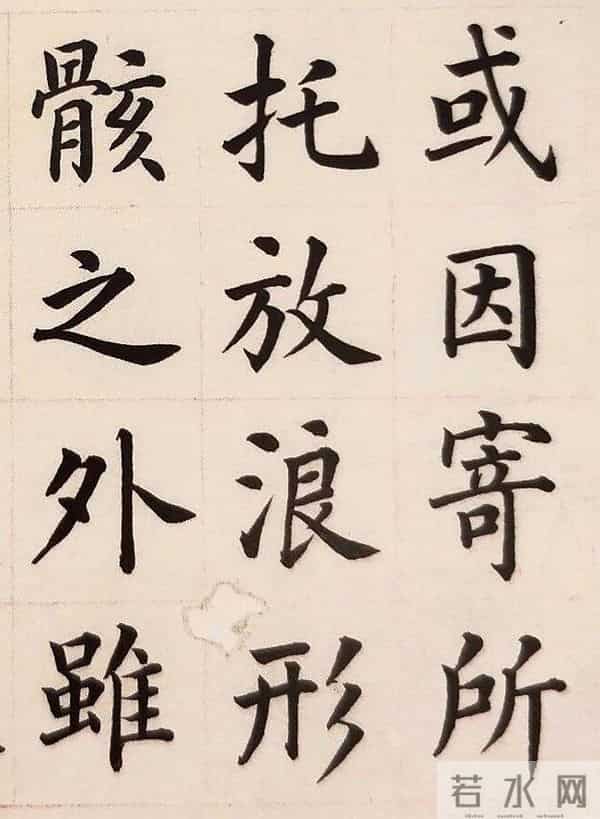 或因寄所
托放浪形
骸之外雖
若水网